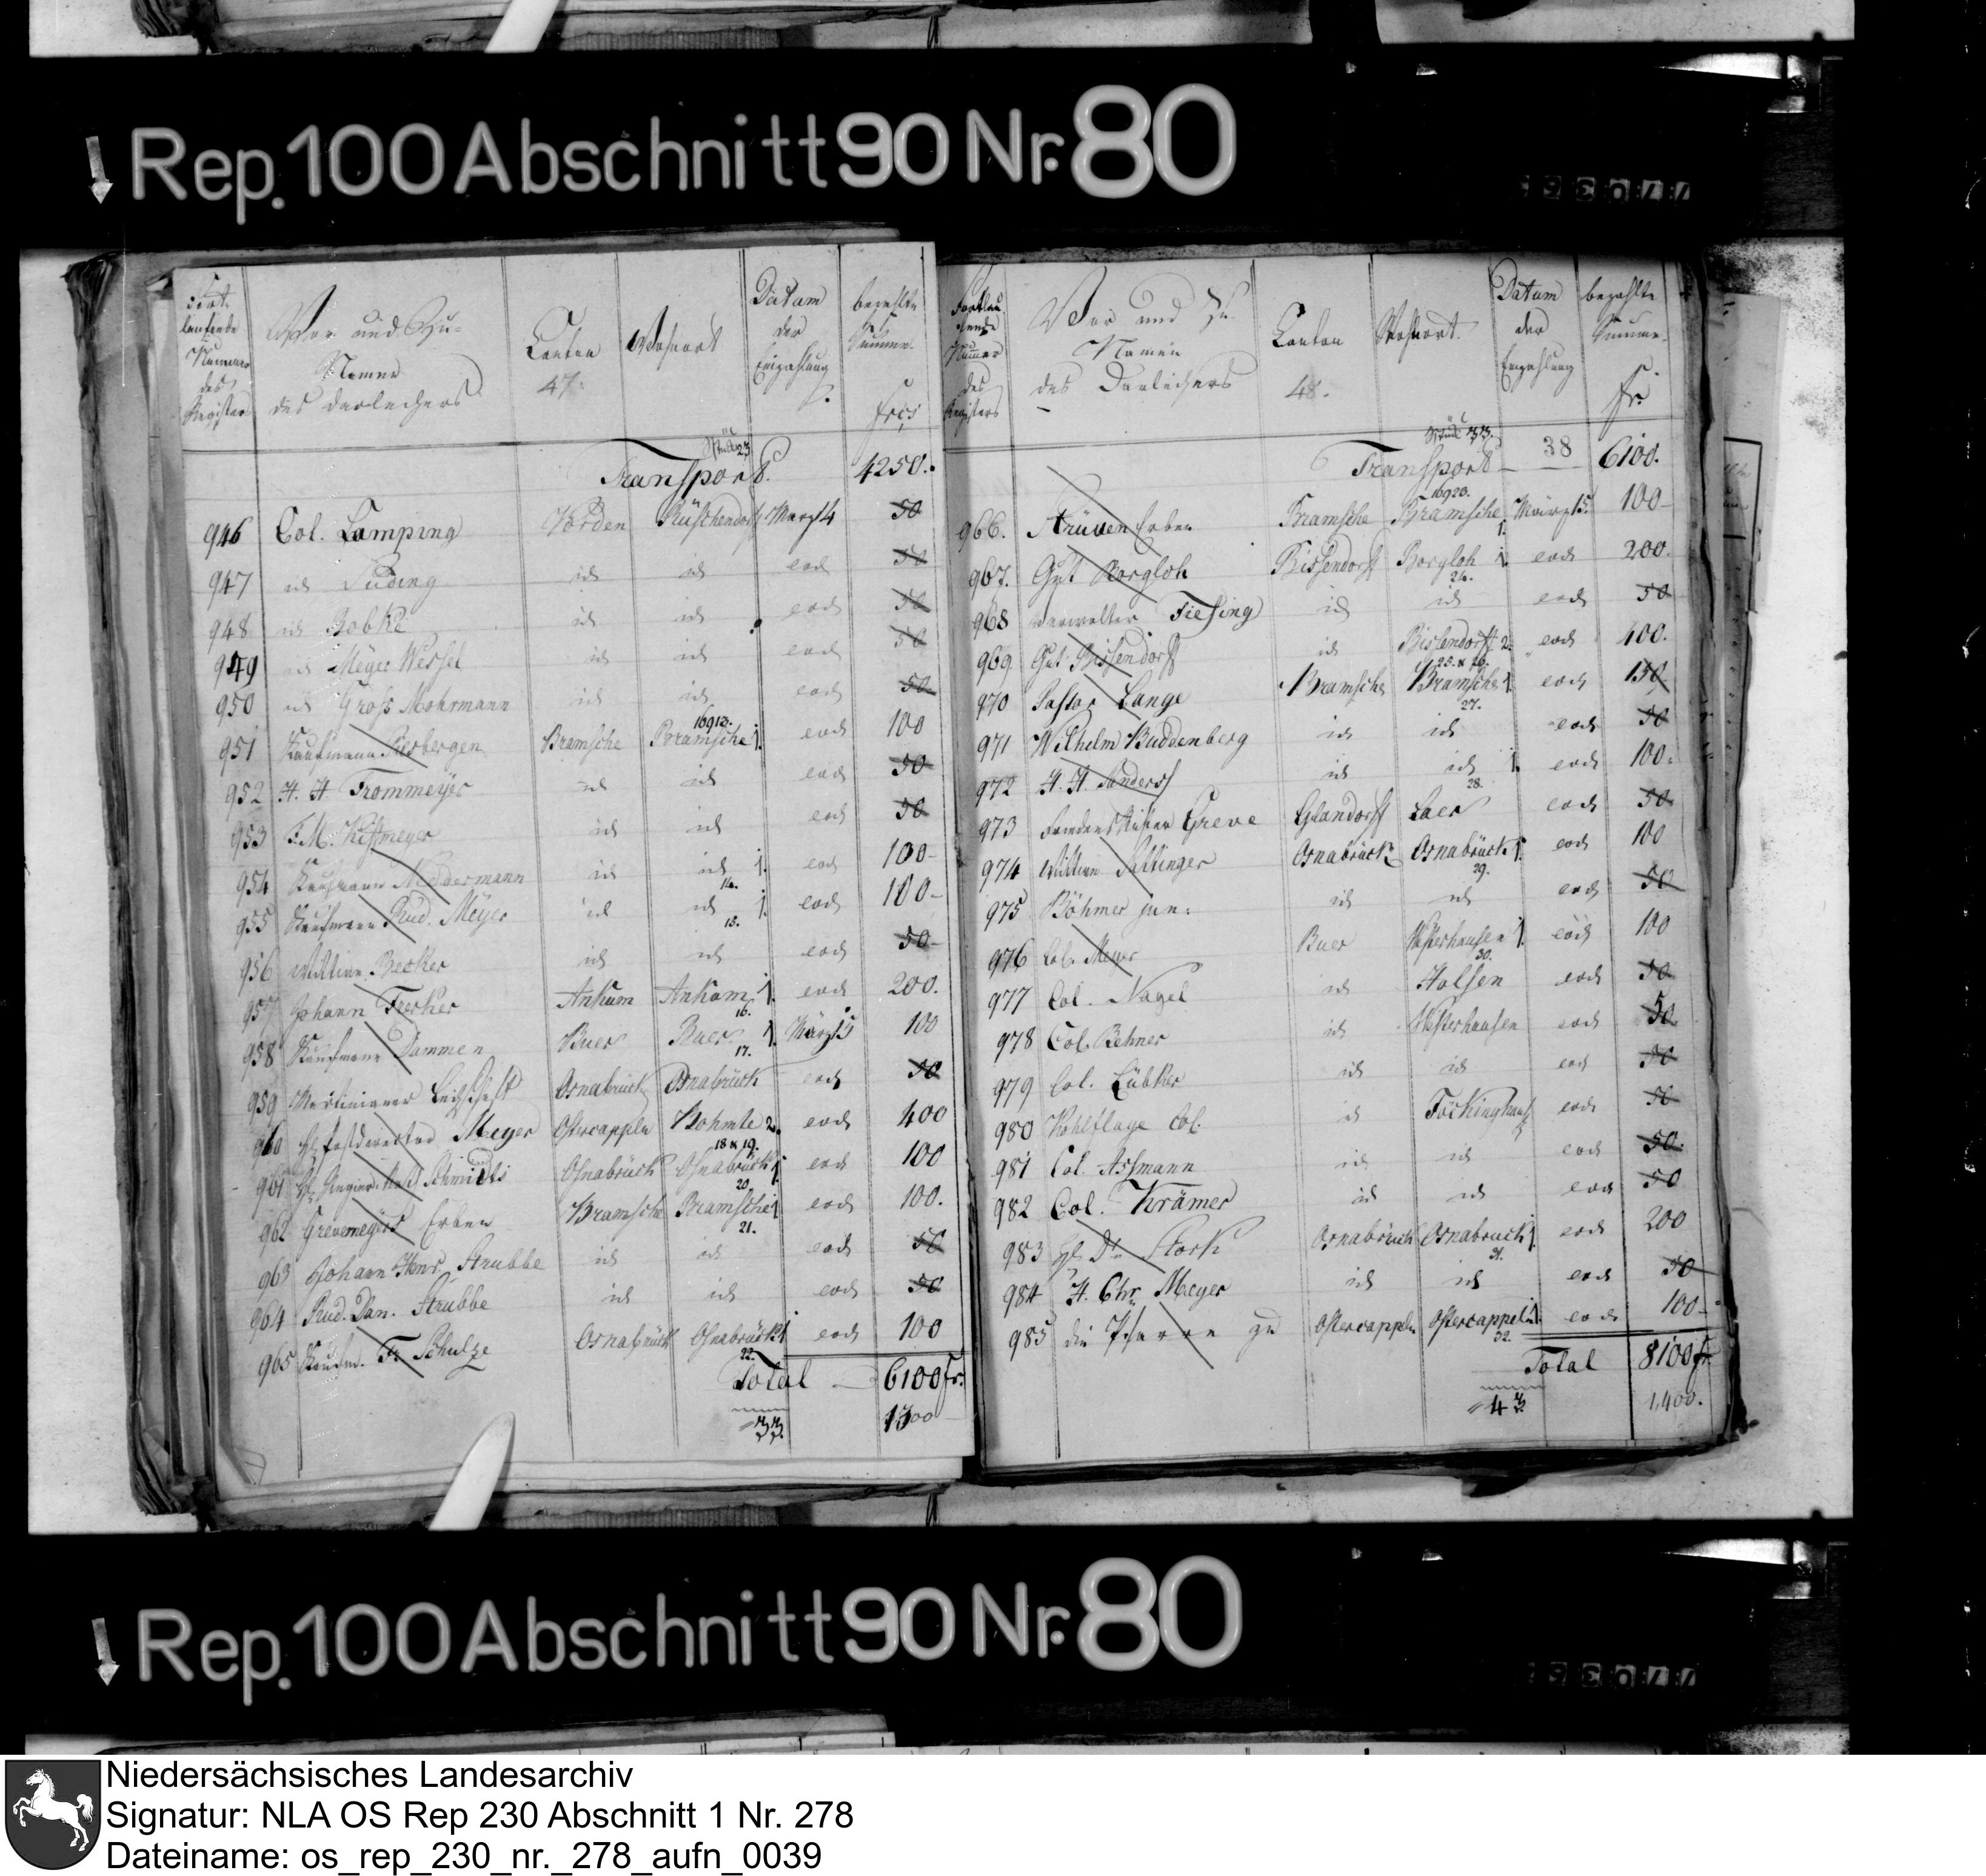 Rep. 100 Abschnitt 90 Nr. 80
Vor und Zu-
Namen
des Darleihers
Canton
47.
Wohnort
Datum
der
Einzahlung
bezahlte
Summe
frcs
Transport. 4250.
946 Col. Lamping Vörden Rüschendorf März 14 50
947 id Suding id id eod 50
948 id Bobke id id eod 50
949 id Meyer Wessel id id eod 50
950 id Gross Mohrmann id id eod 50
951 Kaufmann Bramsche Bramsche 1. eod 100
952 H. H. Frommeyer id id eod 50
953 F. M. id id eod 50
954 Kaufmann Neddermann id id 1. eod 100
14.
955 Kaufmann Rud. Meyer id id 1. eod 100
15.
956 Wittwe Becker id id eod 50
957 Johann Frerker Ankum Ankum 1. eod 200.
16.
958 Kaufmann Dammen Buer Buer 1. März 15 100
17.
959 Osnabrück Osnabrück eod 50
960 Hr. Postdirector Meyer Ostercappeln Bohmte 2. eod 400
18 & 19.
961 Schmidts Osnabrück Osnabrück 1. eod 100
20.
962 Grevemeyers Erben Bramsche Bramsche 1 eod 100.
21.
963 Johann Henr. Strubbe id id eod 50
964 Rud. Dan. Strubbe id id eod 50
965 Kaufm. Fr. Schulze Osnabrück Osnabrück 1 eod 100
22.
Total 6100 fr.
33. 1300
Fortlau-
fende
Nummer
des
Registers
Vor und Zu-
Namen
des Darleihers
Canton
48.
Wohnort.
Datum
der
Einzahlung
bezahlte
Summe.
fr.
Transport 38 6100.
966. Strüven Erben Bramsche Bramsche März 15. 100
1.
967. Gut Borgloh Bissendorff Borgloh 1. eod 200.
24.
968 Verwalter Fiesing id id eod 50
969 Gut Bissendorff id Bissendorff 2. eod 400.
25. & 26.
970 Pastor Lange Bramsche Bramsche 1. eod 150
27.
971 Wilhelm Buddenberg id id eod 50
972 H. H. Sanders id id 1. eod 100.
28.
973 Greve Glandorff Laer eod 50
974 Wittwe Osnabrück Osnabrück 1. eod 100
29.
975 Böhmer jun. id id eod 50
976 Col. Meyer Buer Westerhausen 1. eod 100
30.
977 Col. Nagel id Holsen eod 50
978 Col. Behner id Westerhausen eod 50
979 Col. Lübker id id eod 50
980 Kohlflage Col. id Föckinghaus eod 50
981 Col. Assmann id id eod 50
982 Col. Krämer id id eod 50
983 Hr. Dr. Stork Osnabrück Osnabrück 1. eod 200
31.
984 H. Chr. Meyer id id eod 50
985 die Pfarre zu Ostercappeln Ostercappeln 1. eod 100
32.
Total 8100 fr.
43 1,400.
Rep. 100 Abschnitt 90 Nr. 80
Niedersächsisches Landesarchiv
Signatur: NLA OS Rep 230 Abschnitt 1 Nr. 278
Dateiname: os_rep_230_nr._278_aufn_0039